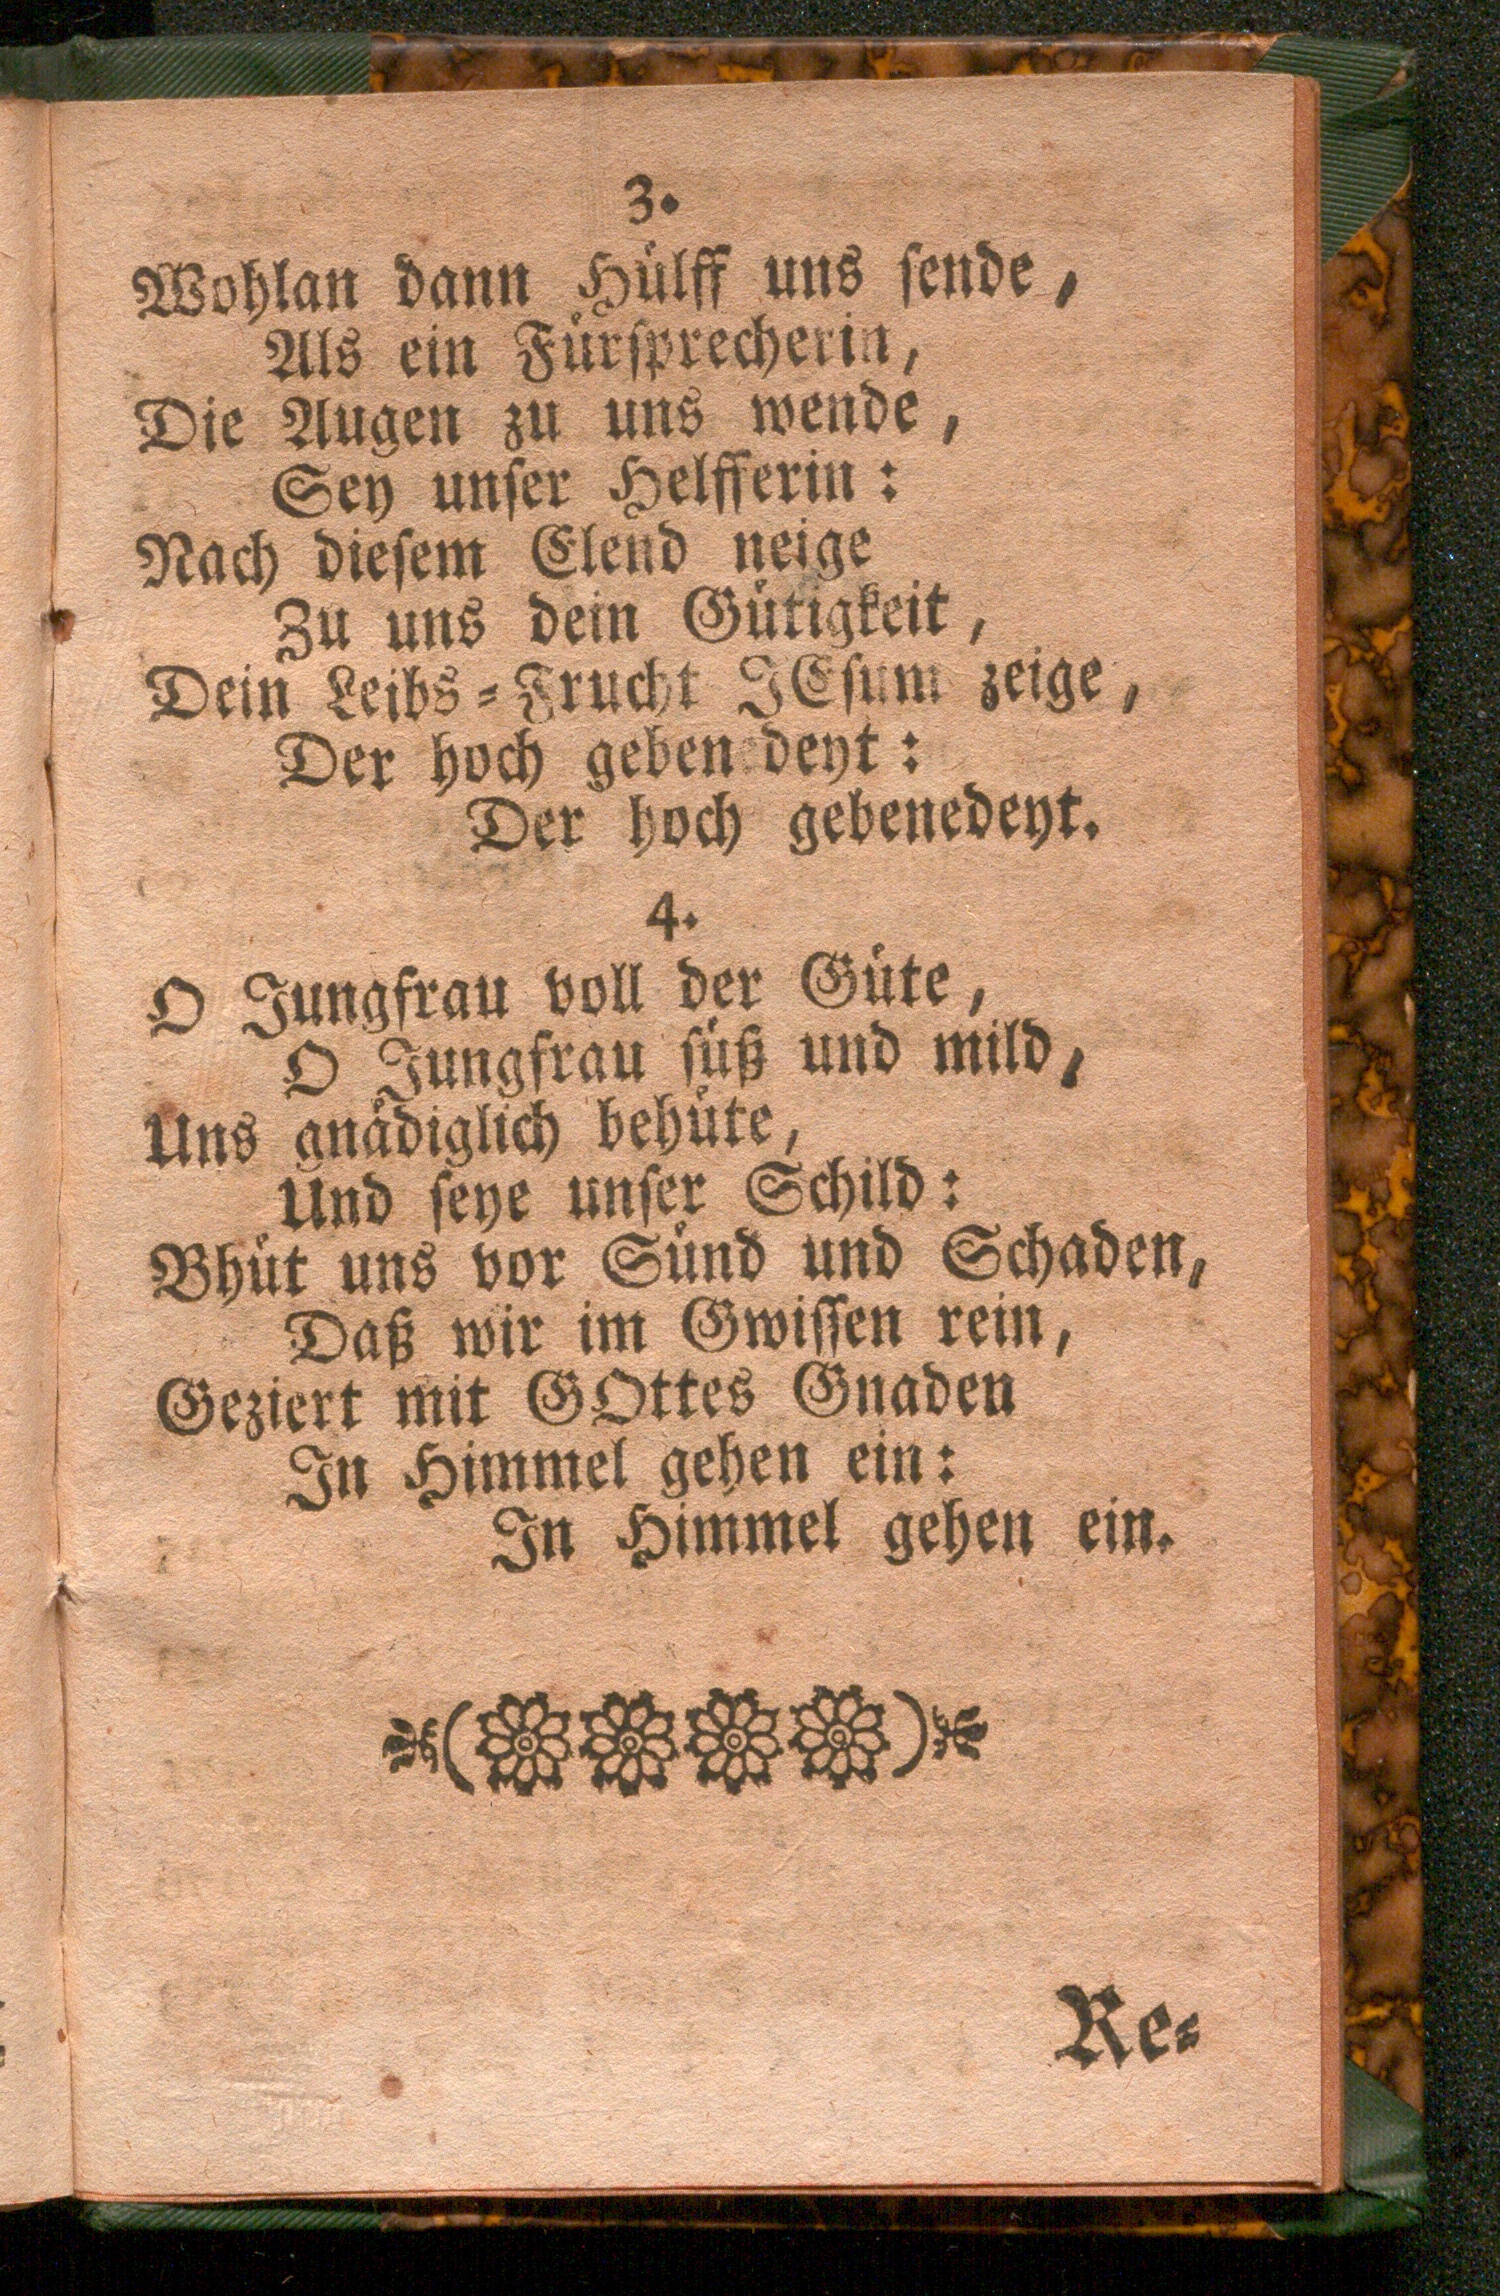 3.
Wohlan dann Hülff uns sende,
Als ein Fürsprecherin,
Die Augen zu uns wende,
Sey unser Helfferin:
Nach diesem Elend neige
Zu uns dein Gütigkeit,
Dein Leibs-Frucht JEsum zeige,
Der hoch gebenedeyt:
Der hoch gebenedeyt.
4.
O Jungfrau voll der Güte,
O Jungfrau süß und mild,
Uns gnädiglich behüte,
Und seye unser Schild:
Bhüt uns vor Sünd und Schaden,
Daß wir im Gwissen rein,
Geziert mit GOttes Gnaden
In Himmel gehen ein:
In Himmel gehen ein.
Re-